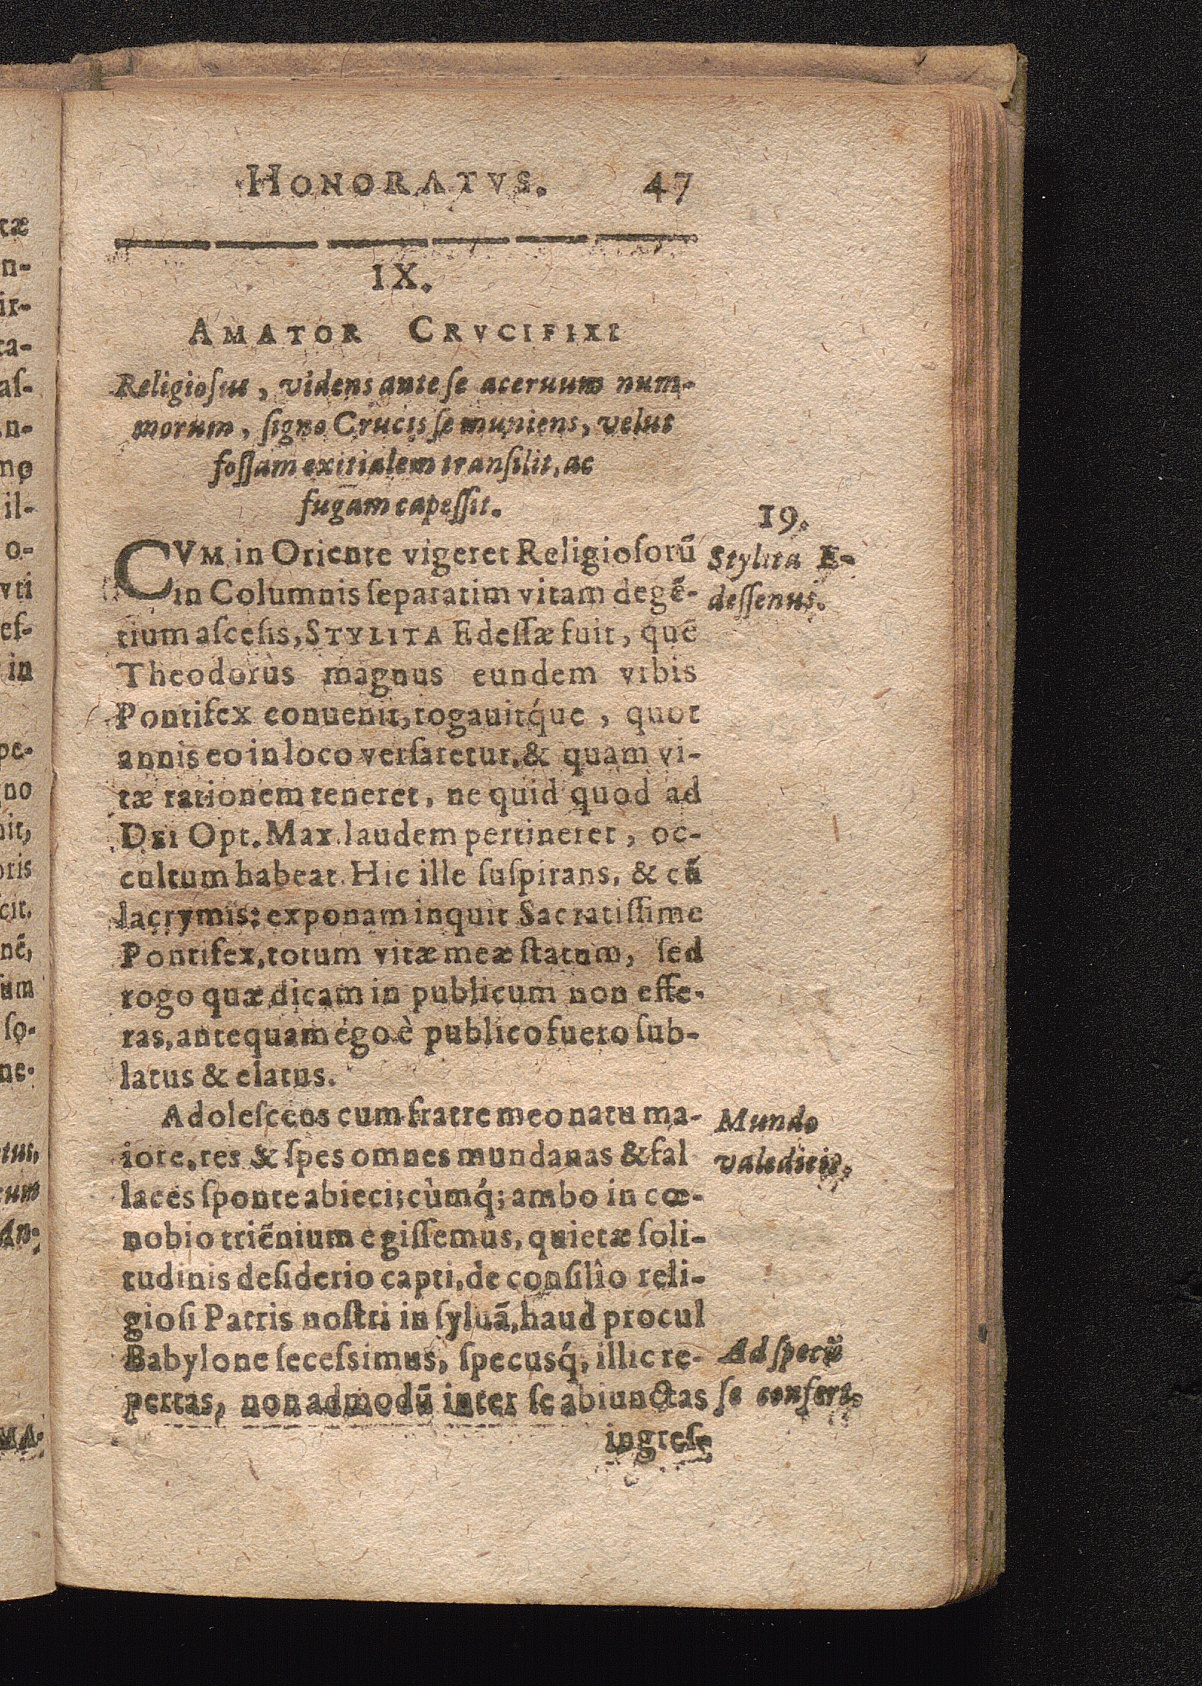 HONORATVS. 47
IX.
AMATOR CRVCIFIXI
Religiosus, videns ante se aceruum num-
morum, signo Crucis se muniens, velut
fossam exitialem transilit, ac
fugam capessit.
19.
Stylita E-
dessenus.
CVM in Oriente vigeret Religiosorũ
in Columnis separatim vitam degẽ-
tium ascesis, STYLITA Edessæ fuit, quẽ
Theodorus magnus eundem vrbis
Pontifex conuenit, rogauitq́ue, quot
annis eo in loco versaretur, & quam vi-
tæ rationem teneret, ne quid quod ad
DEI Opt. Max. laudem pertineret, oc-
cultum habeat. Hic ille suspirans, & cũ
lacrymis: exponam inquit Sacratissime
Pontifex, totum vitæ meæ statum, sed
rogo quæ dicam in publicum non effe-
ras, antequam égo è publico fuero sub-
latus & elatus.
Adolescens cum fratre meo natu ma-
iore, res & spes omnes mundanas & fal
laces sponte abieci; cùmq́; ambo in cœ-
nobio triẽnium egissemus, quietæ soli-
tudinis desiderio capti, de consilîo reli-
giosi Patris nostri in syluã, haud procul
Babylone secessimus, specusq́; illic re-
pertas, non admodũ inter se abiunctas
Mundo
valedicit.
Ad specũ
se confert.
ingres-